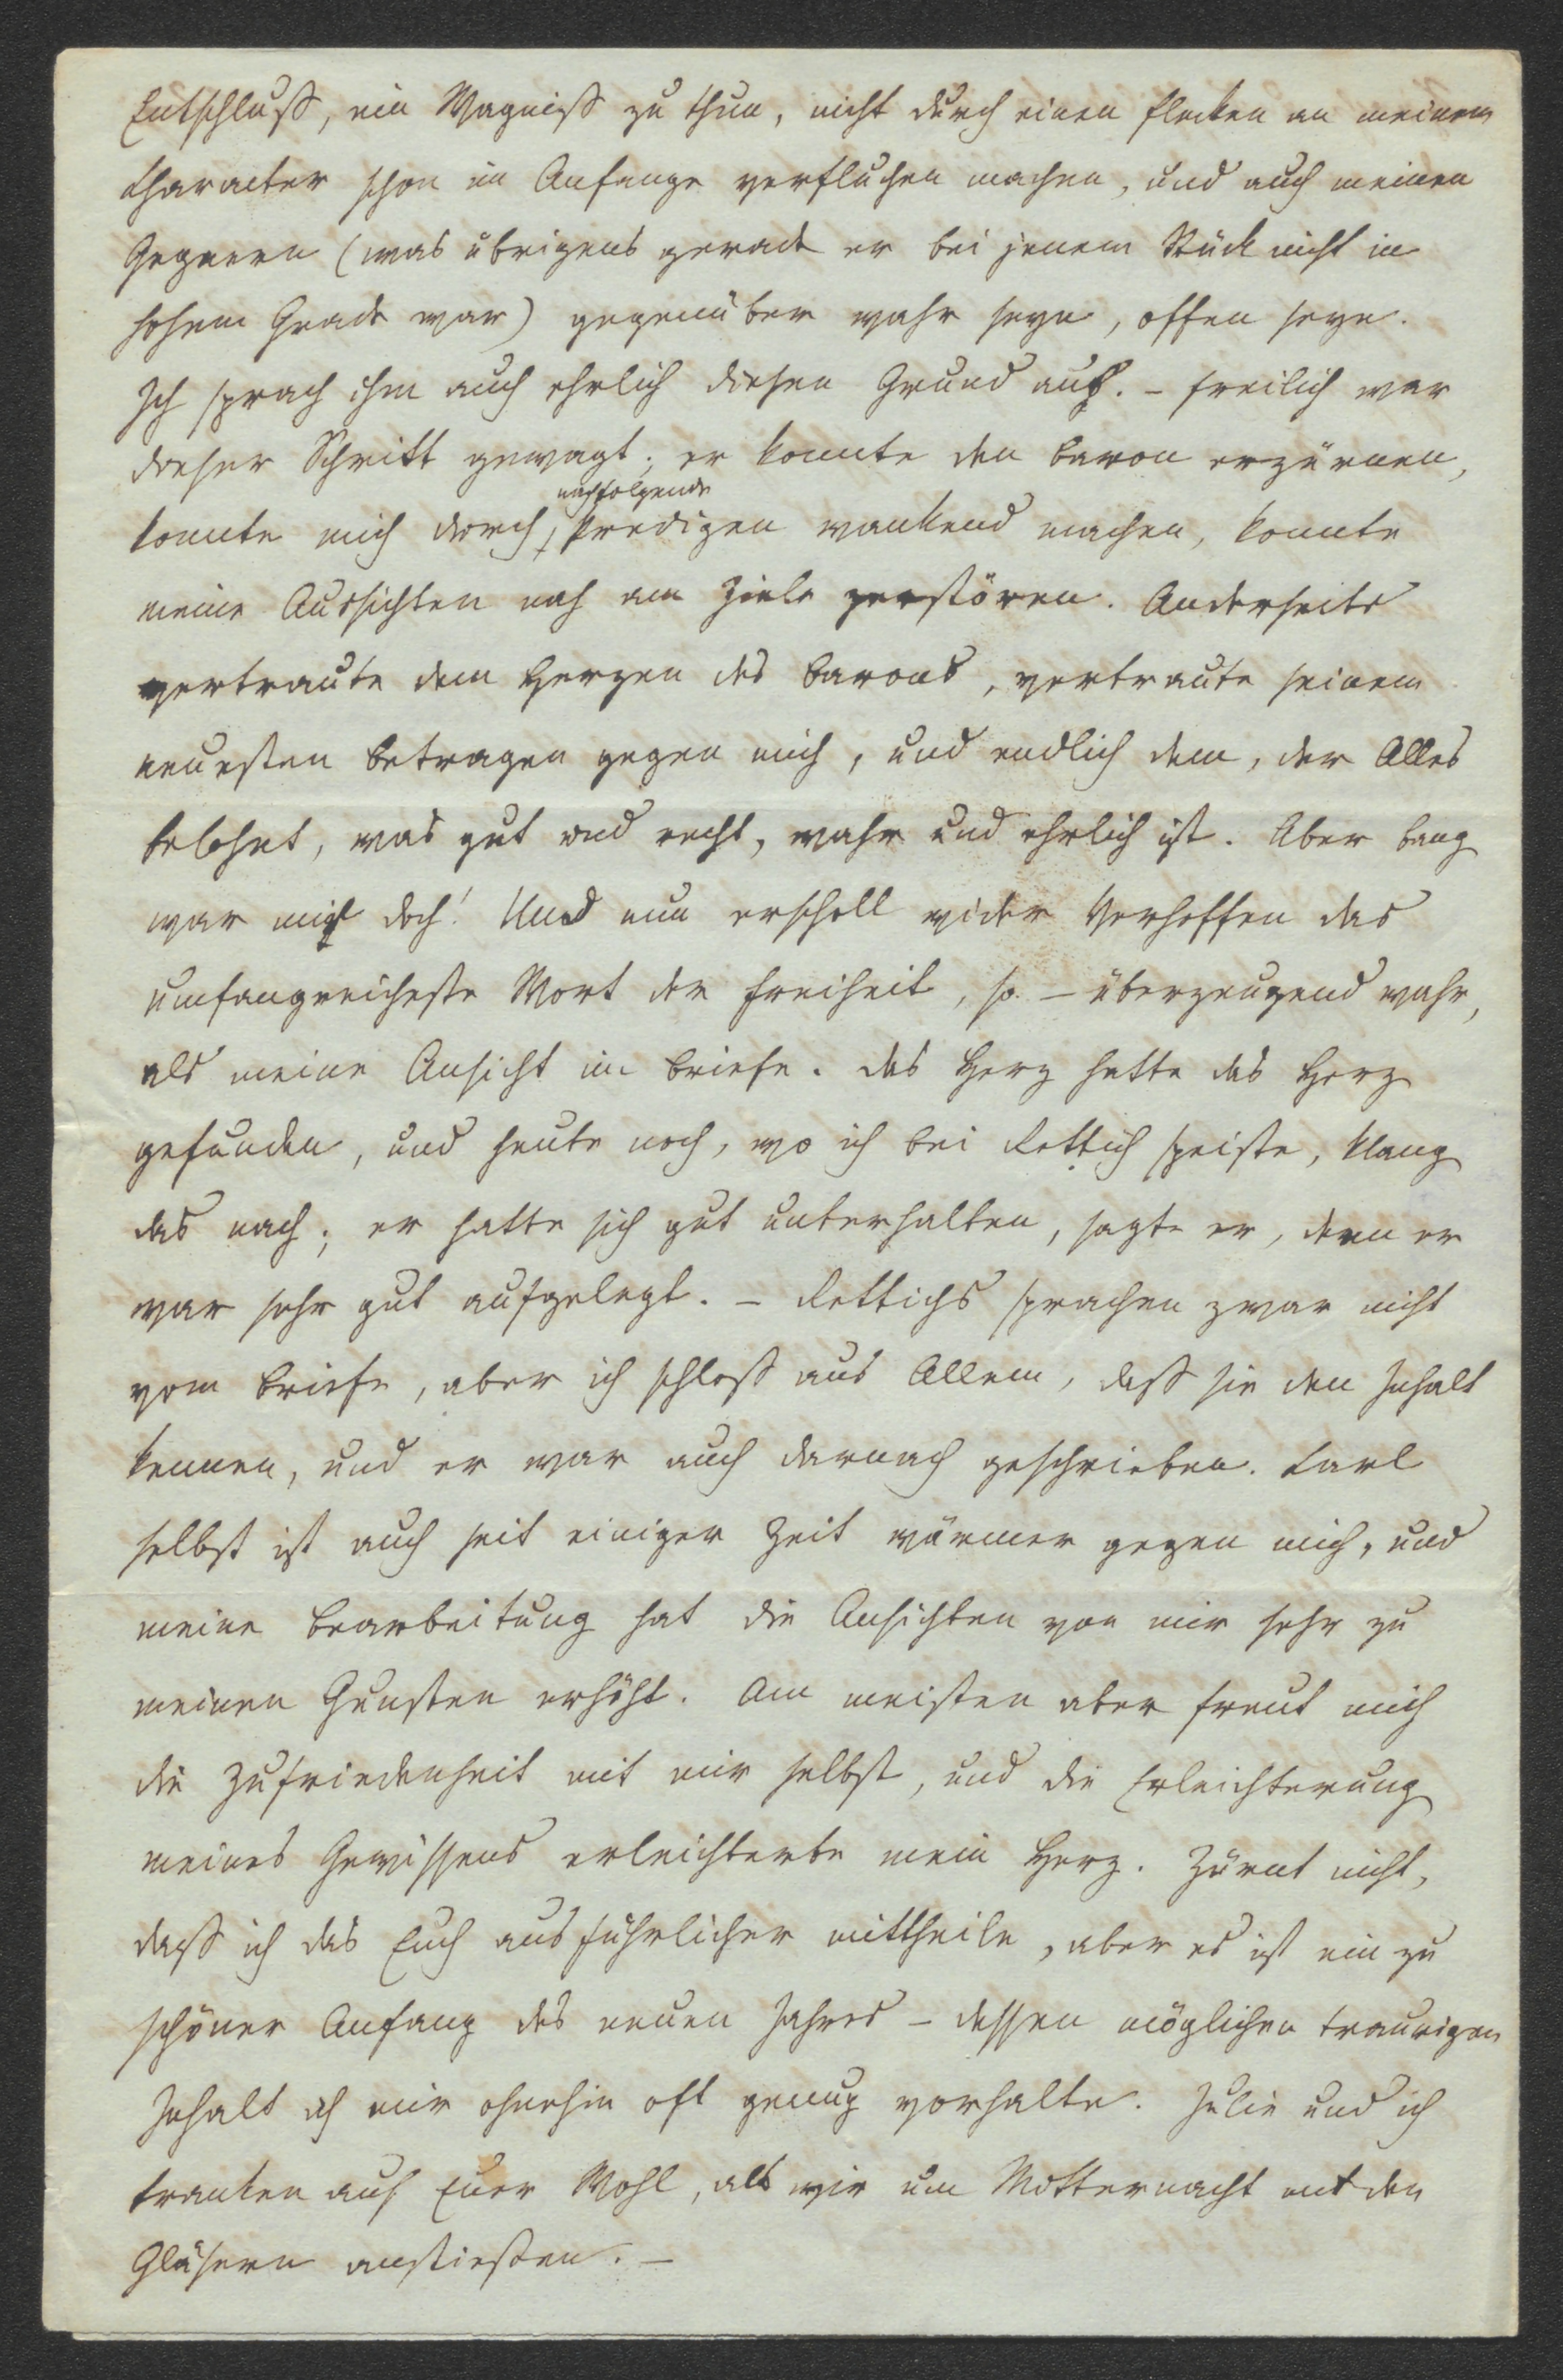 Entschluß, ein Wagniß zu thun, nicht durch einen Flecken an meinem
Character schon im Anfange verfluchen machen, und auch meinen
Gegnern (was übrigens gerade er bei jenem Stück nicht in
hohem Grade war) gegenüber wahr seyn, offen seyn.
Ich sprach ihm auch ehrlich diesen Grund aus. – Freilich war
dieser Schritt gewagt; er konnte den Baron erzürnen,
nachfolgende
konnte mich durch Predigen wankend machen, konnte
meine Aussichten nah am Ziele zerstören. Anderseits
vertraute dem Herzen des Barons, vertraute seinem
neuesten Betragen gegen mich, und endlich dem, der Alles
belohnt, was gut und recht, wahr und ehrlich ist. Aber bang
war mir doch! Und nun erscholl wider Verhoffen das
umfangreichste Wort der Freiheit, so – überzeugend wahr,
als meine Ansicht im Briefe. Das Herz hatte das Herz
gefunden, und heute noch, wo ich bei Rettich speiste, klang
das nach; er hatte sich gut unterhalten, sagte er, denn er
war sehr gut aufgelegt. – Rettichs sprachen zwar nicht
vom Briefe, aber ich schloß aus Allem, daß sie den Inhalt
kennen, und er war auch darnach geschrieben. Carl
selbst ist auch seit einiger Zeit wärmer gegen mich, und
meine Bearbeitung hat die Ansichten von mir sehr zu
meinen Gunsten erhöht. Am meisten aber freut mich
die Zufriedenheit mit mir selbst, und die Erleichterung
meines Gewissens erleichterte mein Herz. Zürnt nicht,
daß ich das Euch ausführlicher mittheile, aber es ist ein zu
schöner Anfang des neuen Jahres – dessen möglichen traurigen
Inhalt ich mir ohnehin oft genug vorhalte. Julie und ich
tranken auf Euer Wohl, als wir um Mitternacht mit den
Gläsern anstießen. –